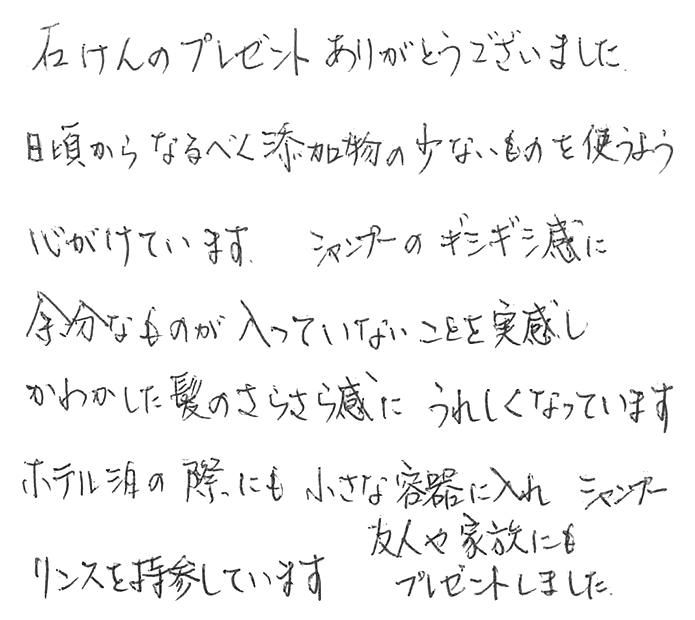 石けんのプレゼントありがとうございました.
日頃からなるべく添加物の少ないものを使うよう
心がけています. シャンプーのギシギシ感に
余分なものが入っていないことを実感し
かわかした髪のさらさら感に うれしくなっています
ホテル泊の際にも 小さな容器に入れ シャンプー
リンスを持参しています
友人や家族にも
プレゼントしました.